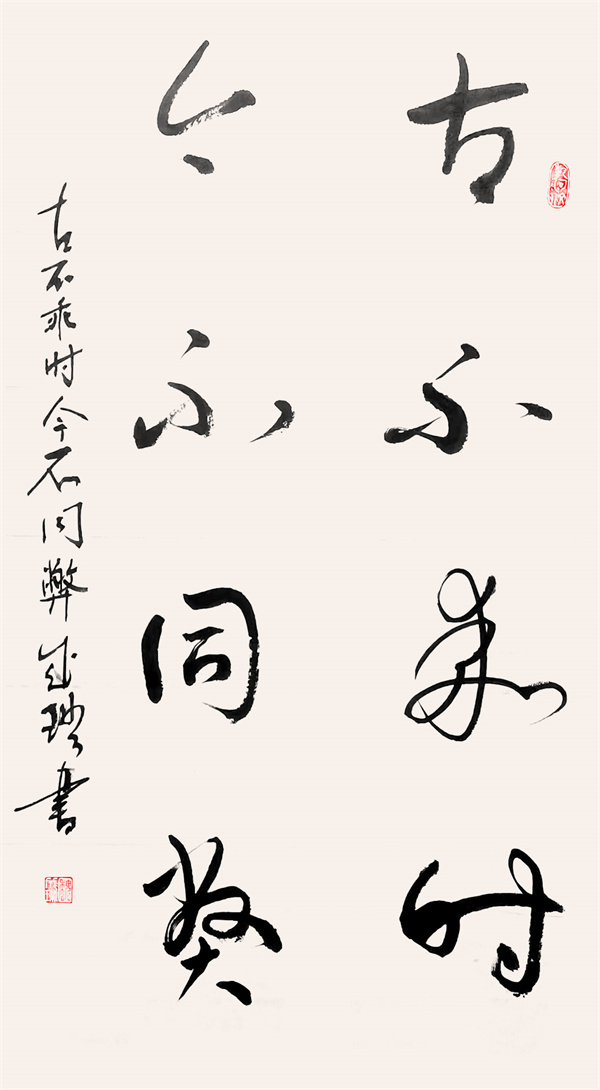 古不乖时
今不同弊
古不乖时今不同弊 書